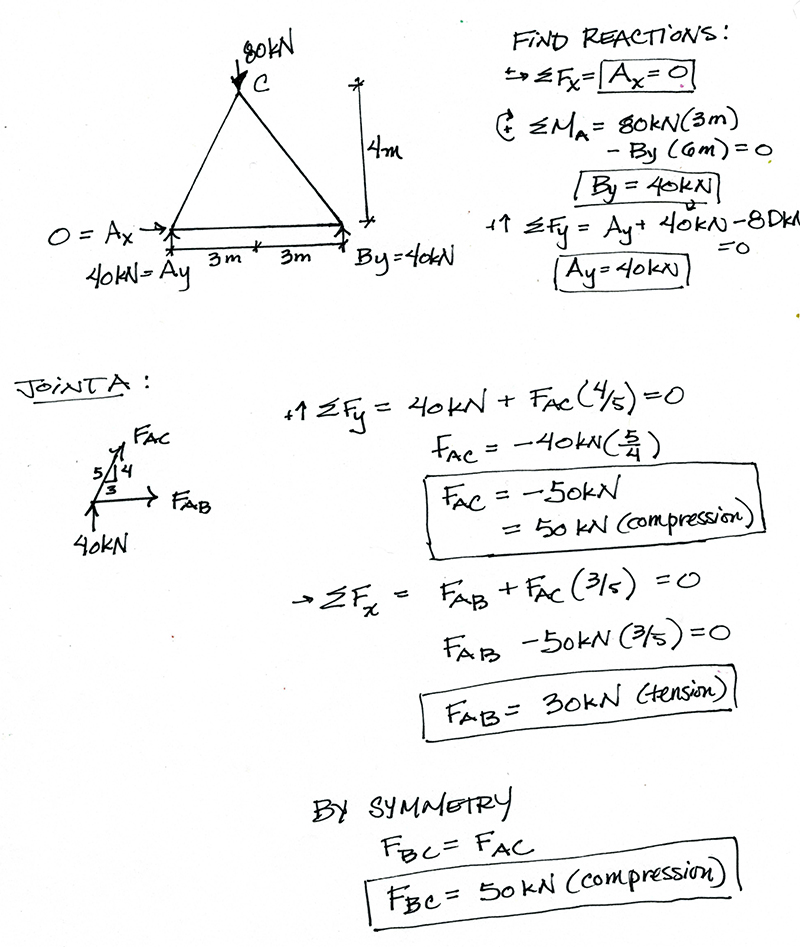 80kN
C
4m
O = Ax
40kN = Ay
3m 3m
By = 40kN
FIND REACTIONS:
+→ ΣFx = Ax = 0
+ ΣMA = 80kN(3m)
- By (6m) = 0
By = 40kN
+↑ ΣFy = Ay + 40kN - 80kN
= 0
Ay = 40kN
JOINT A:
FAC
5 4
3
FAB
40kN
+↑ ΣFy = 40kN + FAC (4/5) = 0
FAC = -40kN(5/4)
FAC = -50kN
= 50 kN (compression)
→ ΣFx = FAB + FAC (3/5) = 0
FAB - 50kN (3/5) = 0
FAB = 30kN (tension)
BY SYMMETRY
FBC = FAC
FBC = 50kN (compression)